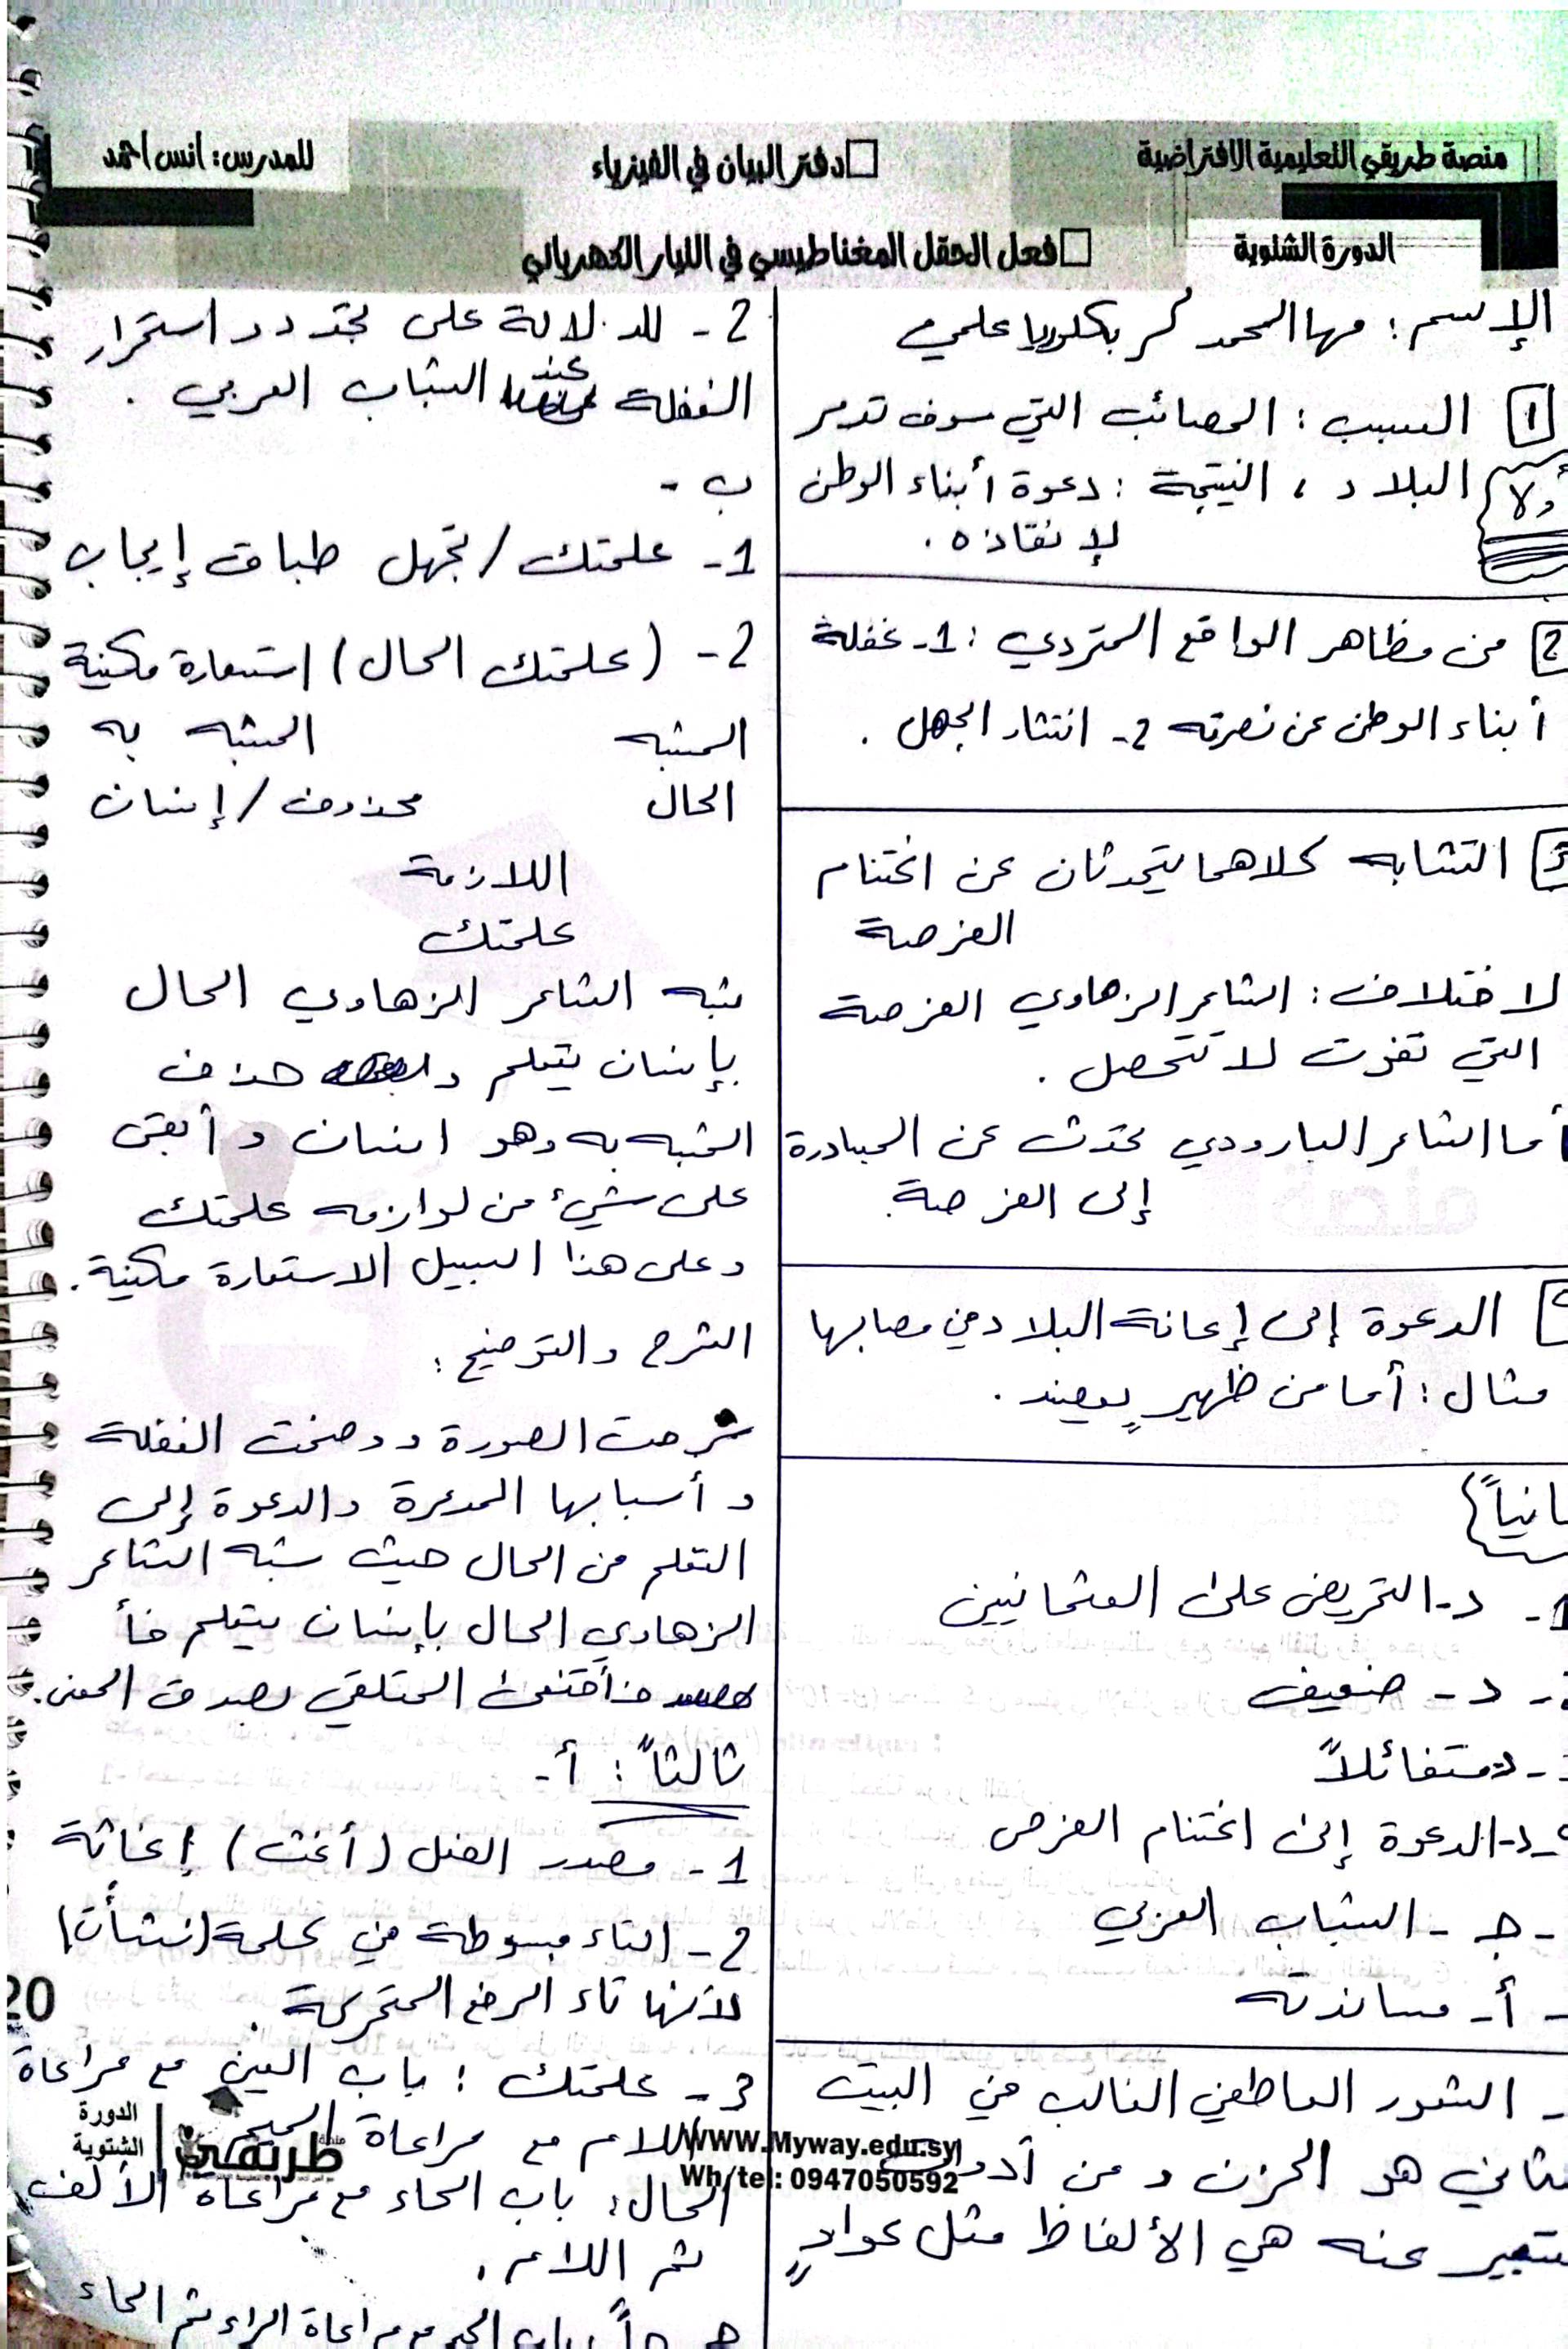 منصة طريقي التعليمية الافتراضية
دفتر البيان في الفيزياء
للمدرس: انس احمد
الدورة الشتوية
فعل الحقل المغناطيسي في التيار الكهربائي
الإسم: مها المحمد بكلوريا علمي
1 السبب: المصائب التي سوف تدمر
البلاد، النتيجة: دعوة أبناء الوطن
لإنقاذه.
2 من مظاهر الواقع المتردي: 1- غفلة
أبناء الوطن عن نصرته 2- انتشار الجهل.
التشابه كلاهما يتحدثان عن اغتنام
الفرصة
لاختلاف: الشاعر الزهاوي الفرصة
التي تفوت لا تتحصل.
أما الشاعر البارودي تحدث عن المبادرة
إلى الفرصة.
الدعوة إلى إعانة البلاد في مصابها
مثال: أما من ظهيرٍ يعضد.
انياً
1- د- التحريض على العثمانيين
- د- ضعيف
- د متفائلاً
- د- الدعوة إلى اغتنام الفرص
- ج- الشباب العربي
- أ- مساندته
- الشعور العاطفي الغالب في البيت
ثاني هو الحزن ومن أدوات
تعبير عنه هي الألفاظ مثل عوادٍ
2- للدلالة على تجدد واستمرار
الغفلة عند الشباب العربي.
ب-
1- علمتك / تجهل طباق إيجاب
2- (علمتك الحال) استعارة مكنية
المشبه المشبه به
الحال محذوف / إنسان
اللازمة
علمتك
شبه الشاعر الزهاوي الحال
بإنسان يتعلم و حذف
المشبه به وهو انسان وأبقى
على شيء من لوازمه علمتك
وعلى هذا السبيل الاستعارة مكنية.
الشرح والتوضيح:
شرحت الصورة ووضحت الغفلة
وأسبابها المدمرة والدعوة إلى
التعلم من الحال حيث شبه الشاعر
الزهاوي الحال بإنسان يتعلم فأ
فأقنعت المتلقي بصدق المعنى.
ثالثاً: أ-
1- مصدر الفعل (أغث) إغاثة
2- التاء مبسوطة في كلمة (نشأت)
لأنها تاء الرفع المتحركة.
3- علمتك: باب العين مع مراعاة
اللام مع مراعاة الميم
الحال: باب الحاء مع مراعاة الألف
ثم اللام.
مراعاة الراء ثم الحاء
20
الدورة
الشتوية
منصة
طريقي
WWW.Myway.edu.sy
Wh/tel: 0947050592